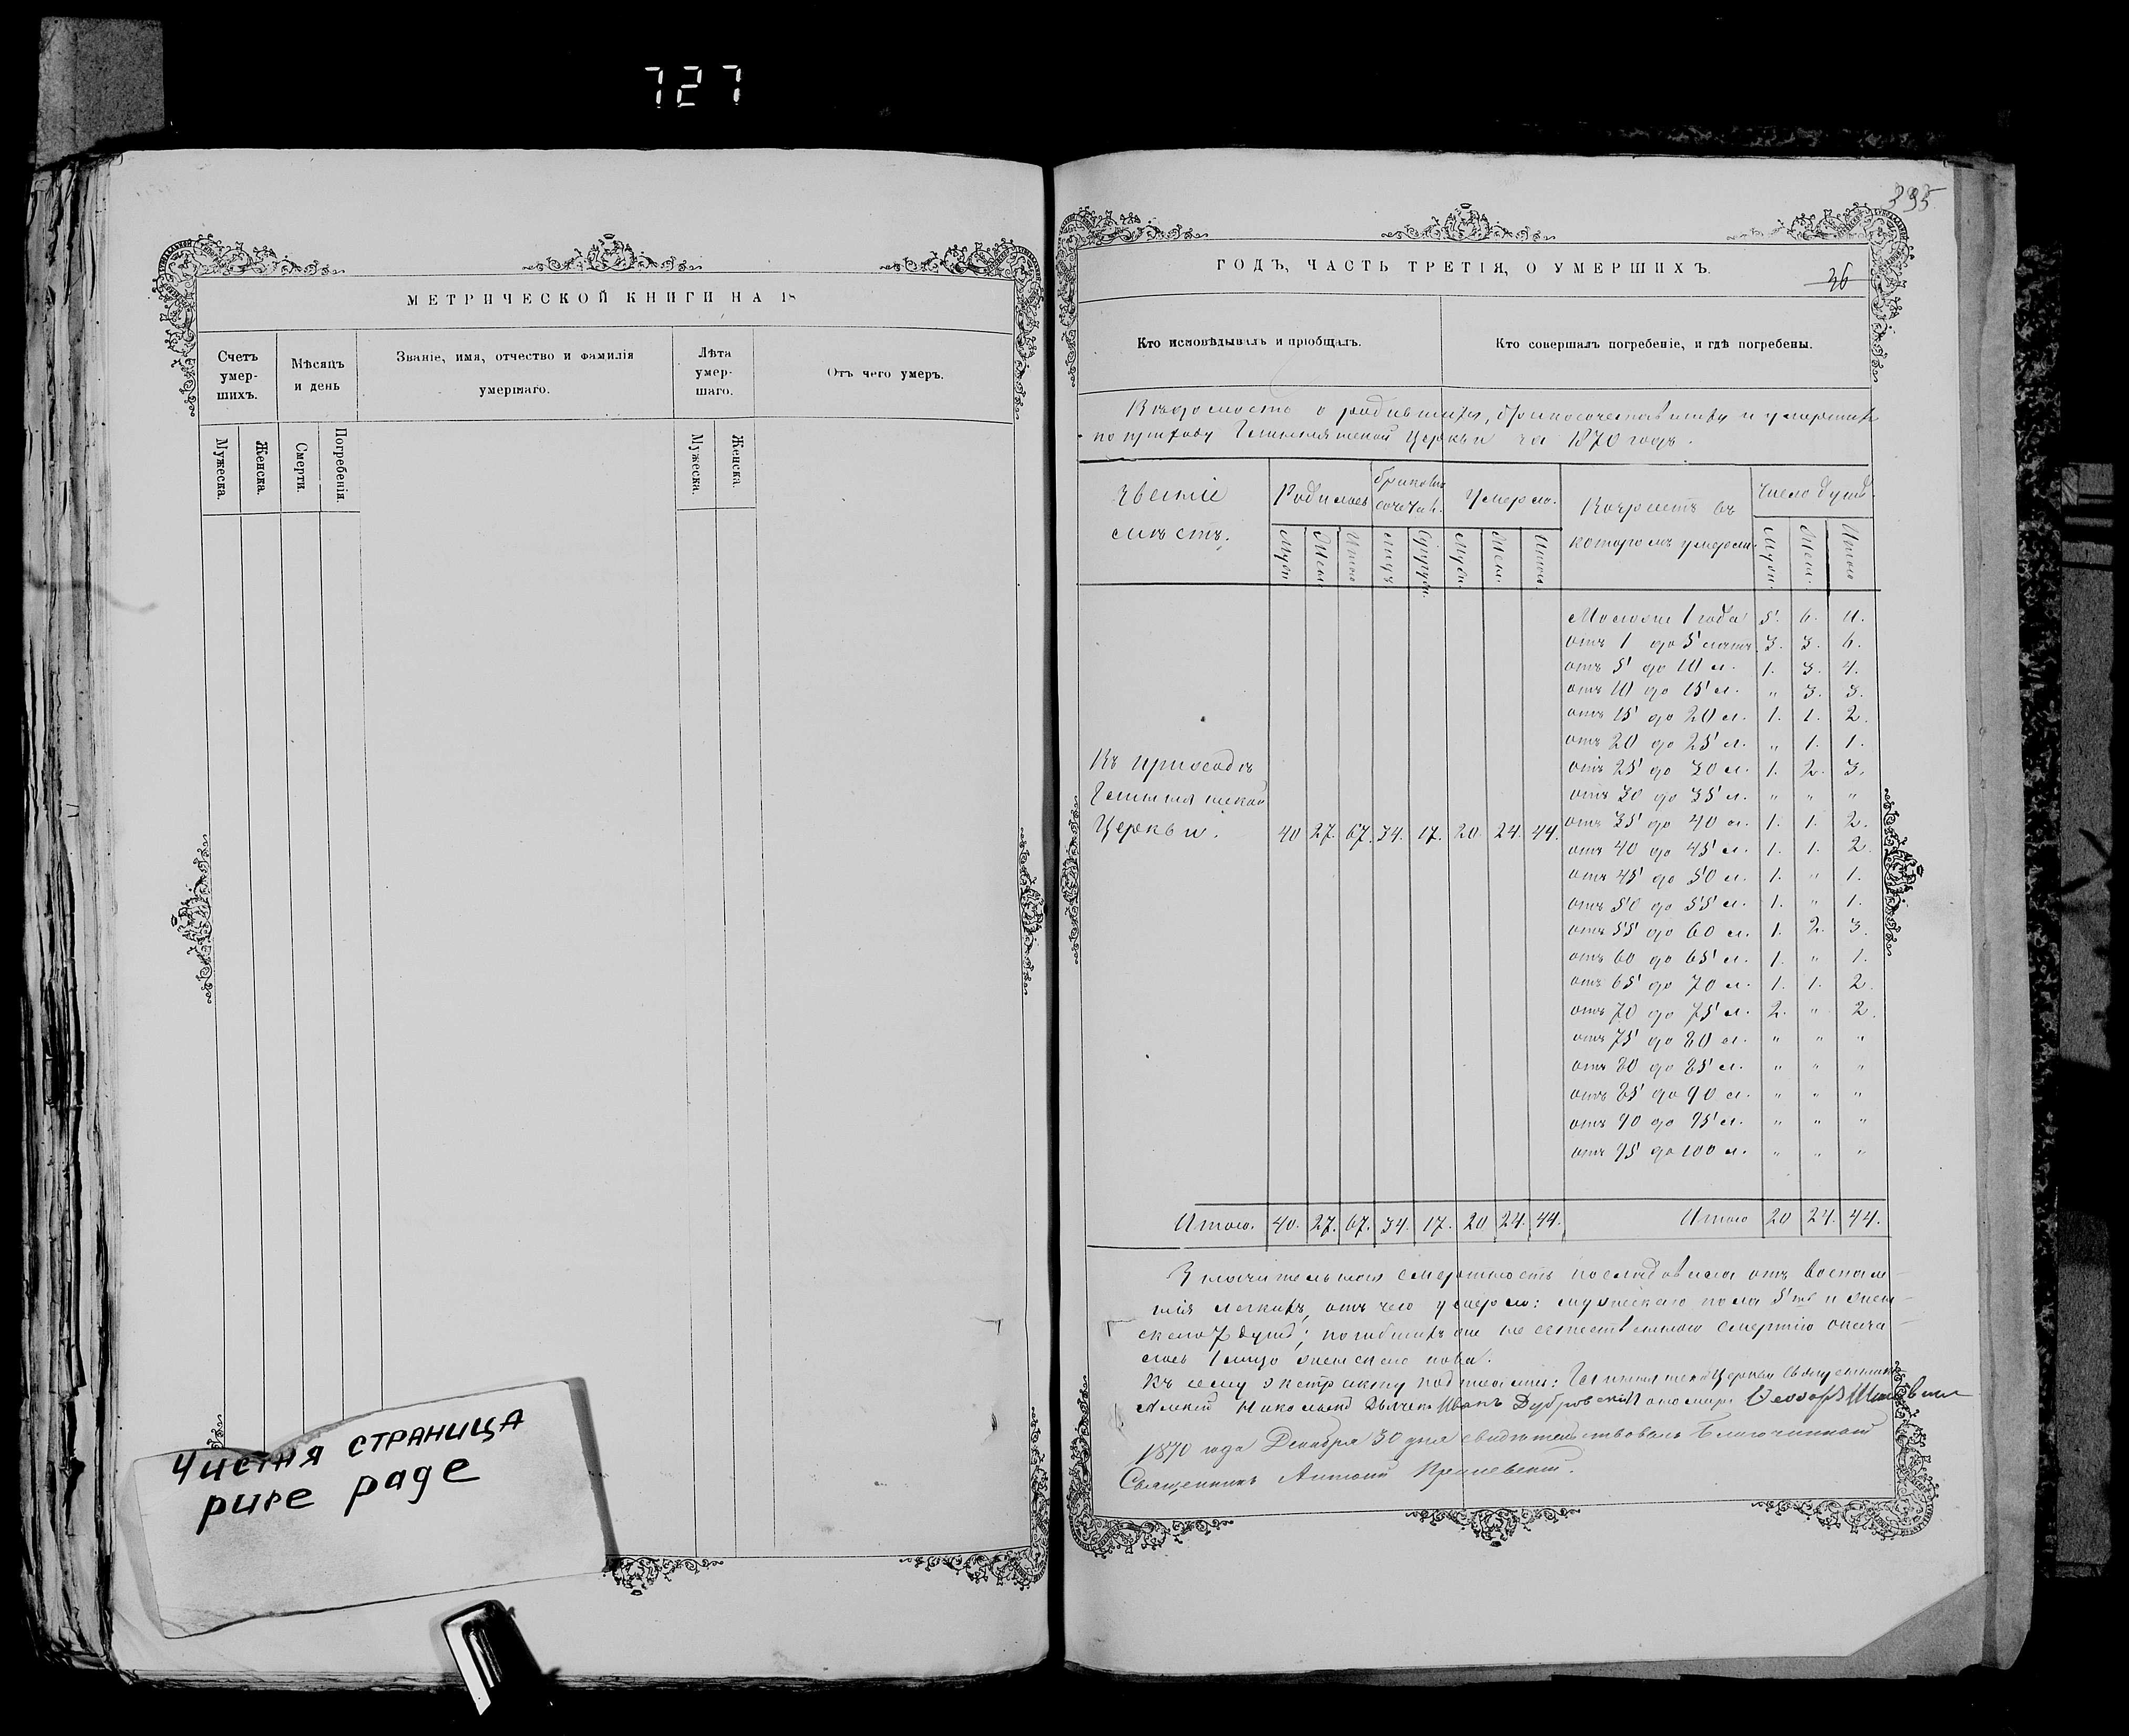 727
МЕТРИЧЕСКОЙ КНИГИ НА 18
Счетъ умер-шихъ.
Мѣсяцъ и день
Званіе, имя, отчество и фамилія умершаго.
Лѣта умер-шаго.
Отъ чего умеръ.
Мужеска.
Женска.
Смерти.
Погребенія.
Мужеска.
Женска.
Чистая страница
pure page
395
ГОДЪ, ЧАСТЬ ТРЕТІЯ, О УМЕРШИХЪ.
36
Кто исповѣдывалъ и пріобщалъ.
Кто совершалъ погребеніе, и гдѣ погребены.
Вѣдомость о родившихся, бракосочетавшихся и умершихъ
по приходу Церкви за 1870 годъ.
Званіе мѣстъ.
Родилось
браковъ сочетан.
Умерло.
Возрастъ въ которомъ умерли
Число душъ
Муж.
Жен.
Итого
лицъ
Супруж.
Муж.
Жен.
Итого
Муж.
Жен.
Итого
Моложе 1 года 5. 6. 11.
отъ 1 до 5 лѣтъ 3. 3. 6.
отъ 5 до 10 л. 1. 3. 4.
отъ 10 до 15 л. " 3. 3.
отъ 15 до 20 л. 1. 1. 2.
отъ 20 до 25 л. " 1. 1.
отъ 25 до 30 л. 1. 2. 3.
отъ 30 до 35 л. " " "
отъ 35 до 40 л. 1. 1. 2.
отъ 40 до 45 л. 1. 1. 2.
отъ 45 до 50 л. 1. " 1.
отъ 50 до 55 л. 1. " 1.
отъ 55 до 60 л. 1. 2. 3.
отъ 60 до 65 л. 1. " 1.
отъ 65 до 70 л. 1. 1. 2.
отъ 70 до 75 л. 2. " 2.
отъ 75 до 80 л. " " "
отъ 80 до 85 л. " " "
отъ 85 до 90 л. " " "
отъ 90 до 95 л. " " "
отъ 95 до 100 л. " " "
Въ приходѣ
Церкви. 40 27. 67. 34. 17. 20. 24. 44.
Итого. 40. 27. 67. 34. 17. 20 24. 44. Итого 20 24. 44.
Значительная смертность послѣдовала отъ воспале-
нія легкихъ, отъ чего умерло: мужескаго пола 5 и жен-
скаго 7 душъ; погибшихъ не естественною смертію оказа-
лось 1 лицо женскаго пола.
Къ сему экстракту подписались: Церкви Священникъ
Дьячекъ Иванъ Дубровскій Пономарь Ѳеодоръ
1870 года Декабря 30 дня свидѣтельствовалъ Благочинный
Священникъ Антоній